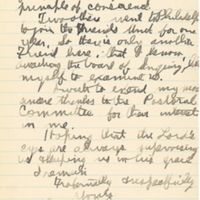 principle of consciend.
Two other went to
to join the Friends and for one
so there is only another
Friend here, that I known
awaiting the board of inquiry, like
myself to examine us.
I wish to extend my more
sincere thanks to the Pastoral
Committee for their interest
in me.
Hoping that the Lords
eyes are always supervising
us keeping us in his grace
I remain
Fraternally & respectfully
Yours